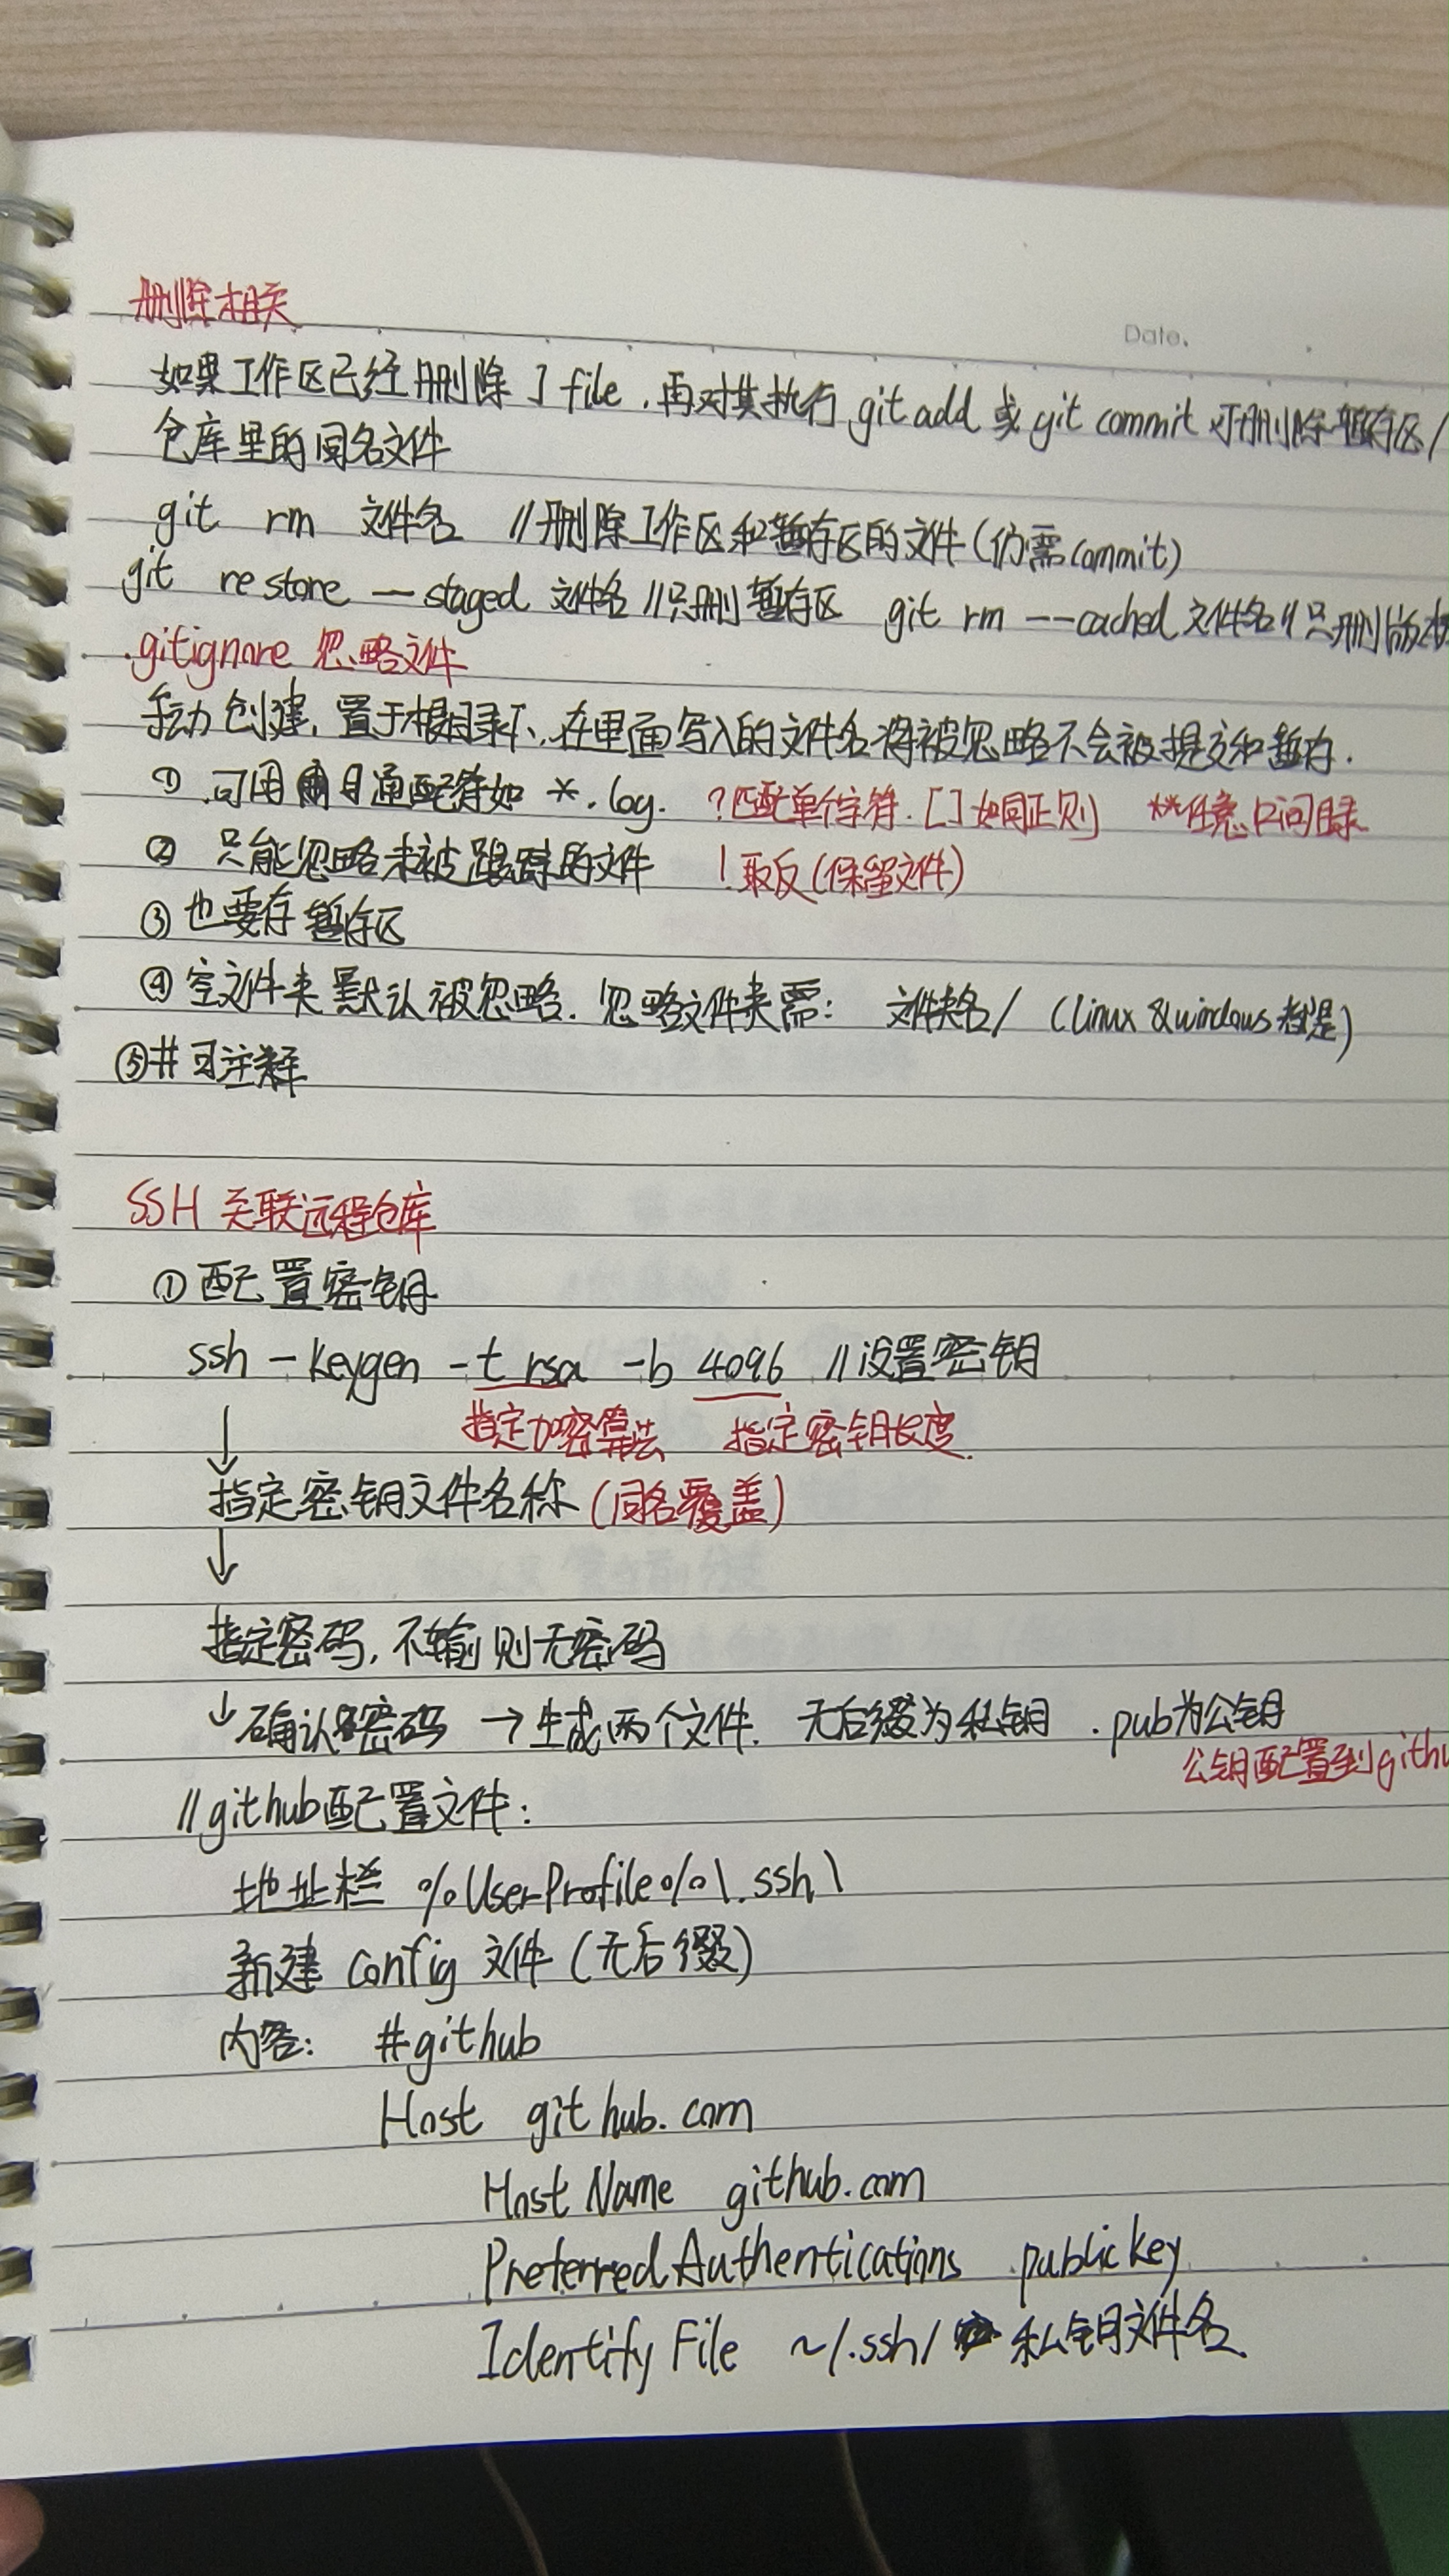 Date.
删除相关
如果工作区已经删除了file,再对其执行git add 或git commit 可删除暂存区/
仓库里的同名文件
git rm 文件名 //删除工作区和暂存区的文件(仍需commit)
git restore --staged 文件名 //只删暂存区 git rm --cached 文件名 //只删版本
.gitignore 忽略文件
手动创建,置于根目录下,在里面写入的文件名将被忽略不会被提交和暂存.
① 可用通配符如 *.log. ?匹配单个字符.[]如同正则 **任意中间目录
② 只能忽略未被跟踪的文件 !取反(保留文件)
③ 也要存暂存区
④ 空文件夹默认被忽略. 忽略文件夹需: 文件夹名/ (linux & windows 都是)
⑤ # 可注释
SSH 关联远程仓库
① 配置密钥
ssh-keygen -t rsa -b 4096 //设置密钥
↓ 指定加密算法 指定密钥长度
指定密钥文件名称(同名覆盖)
↓
指定密码,不输则无密码
↓确认密码 →生成两个文件. 无后缀为私钥 .pub为公钥
公钥配置到githu
//github配置文件:
地址栏 %UserProfile%\.ssh\
新建 config 文件(无后缀)
内容: #github
Host github.com
HostName github.com
PreferredAuthentications publickey
IdentifyFile ~/.ssh/ 私钥文件名